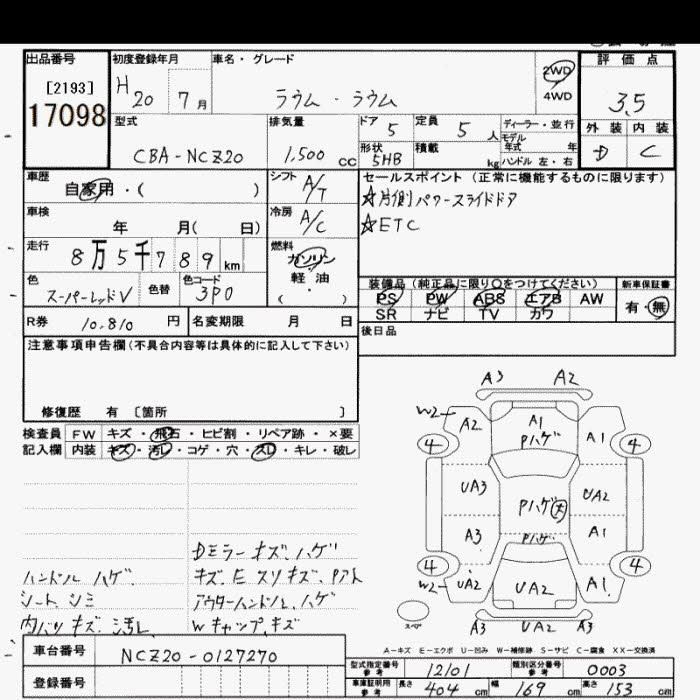 出品番号
[2193]
17098
初度登録年月
H 20 7 月
車名・グレード
ラウム・ラウム
2WD
4WD
評価点
3.5
外装 内装
D C
型式
CBA-NCZ20
排気量
1,500 cc
ドア 5
形状 5HB
定員 5 人
積載 kg
ディーラー・並行
モデル年式 年
ハンドル 左・右
車歴
自家用・( )
シフト A/T
車検
年 月( 日)
冷房 A/C
走行
8万5千789km
燃料
ガソリン
軽・油
( )
色
スーパーレッドV
色替
色コード
3P0
R券 10,810 円
名変期限 月 日
セールスポイント(正常に機能するものに限ります)
☆片側パワースライドドア
☆ETC
装備品(純正品に限り○をつけてください)
PS PW ABS エアB AW
SR ナビ TV カワ
新車保証書
有・無
後日品
注意事項申告欄(不具合内容等は具体的に記入して下さい)
修復歴 有 〔箇所 〕
検査員記入欄
FW キズ・飛石・ヒビ割・リペア跡・×要
内装 キズ・汚レ・コゲ・穴・スレ・キレ・破レ
ハンドル ハゲ.
シート.シミ
内バリ キズ.汚レ
Dミラー キズ.ハゲ
キズ.E スリキズ.Pアト
アウターハンドル.ハゲ
Wキャップ.キズ
A3 A2
W2 A2 A1 Pハゲ A1
4 4
UA3 Pハゲ 大 UA2
A3 Pハゲ A1
4 4
W2 UA2 UA2 A1
スペア
A3 UA2 A3
A-キズ E-エクボ U-凹み W-補修跡 S-サビ C-腐食 XX-交換済
車台番号
NCZ20-0127270
登録番号
型式指定番号 参考 12101
類別区分番号 参考 0003
車庫証明用 参考
長さ 404 cm 幅 169 cm 高さ 153 cm